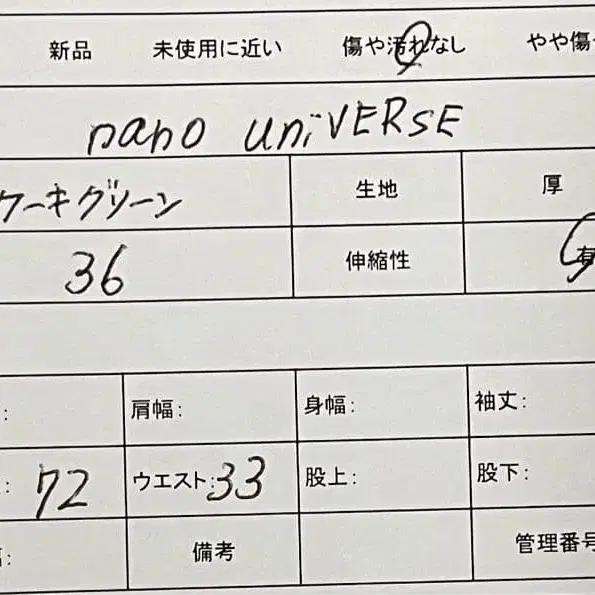 新品 未使用に近い 傷や汚れなし やや傷
nano UniVERSE
ケーキグリーン 生地 厚
36 伸縮性 有
: 肩幅: 身幅: 袖丈:
: 72 ウエスト: 33 股上: 股下:
: 備考 管理番号